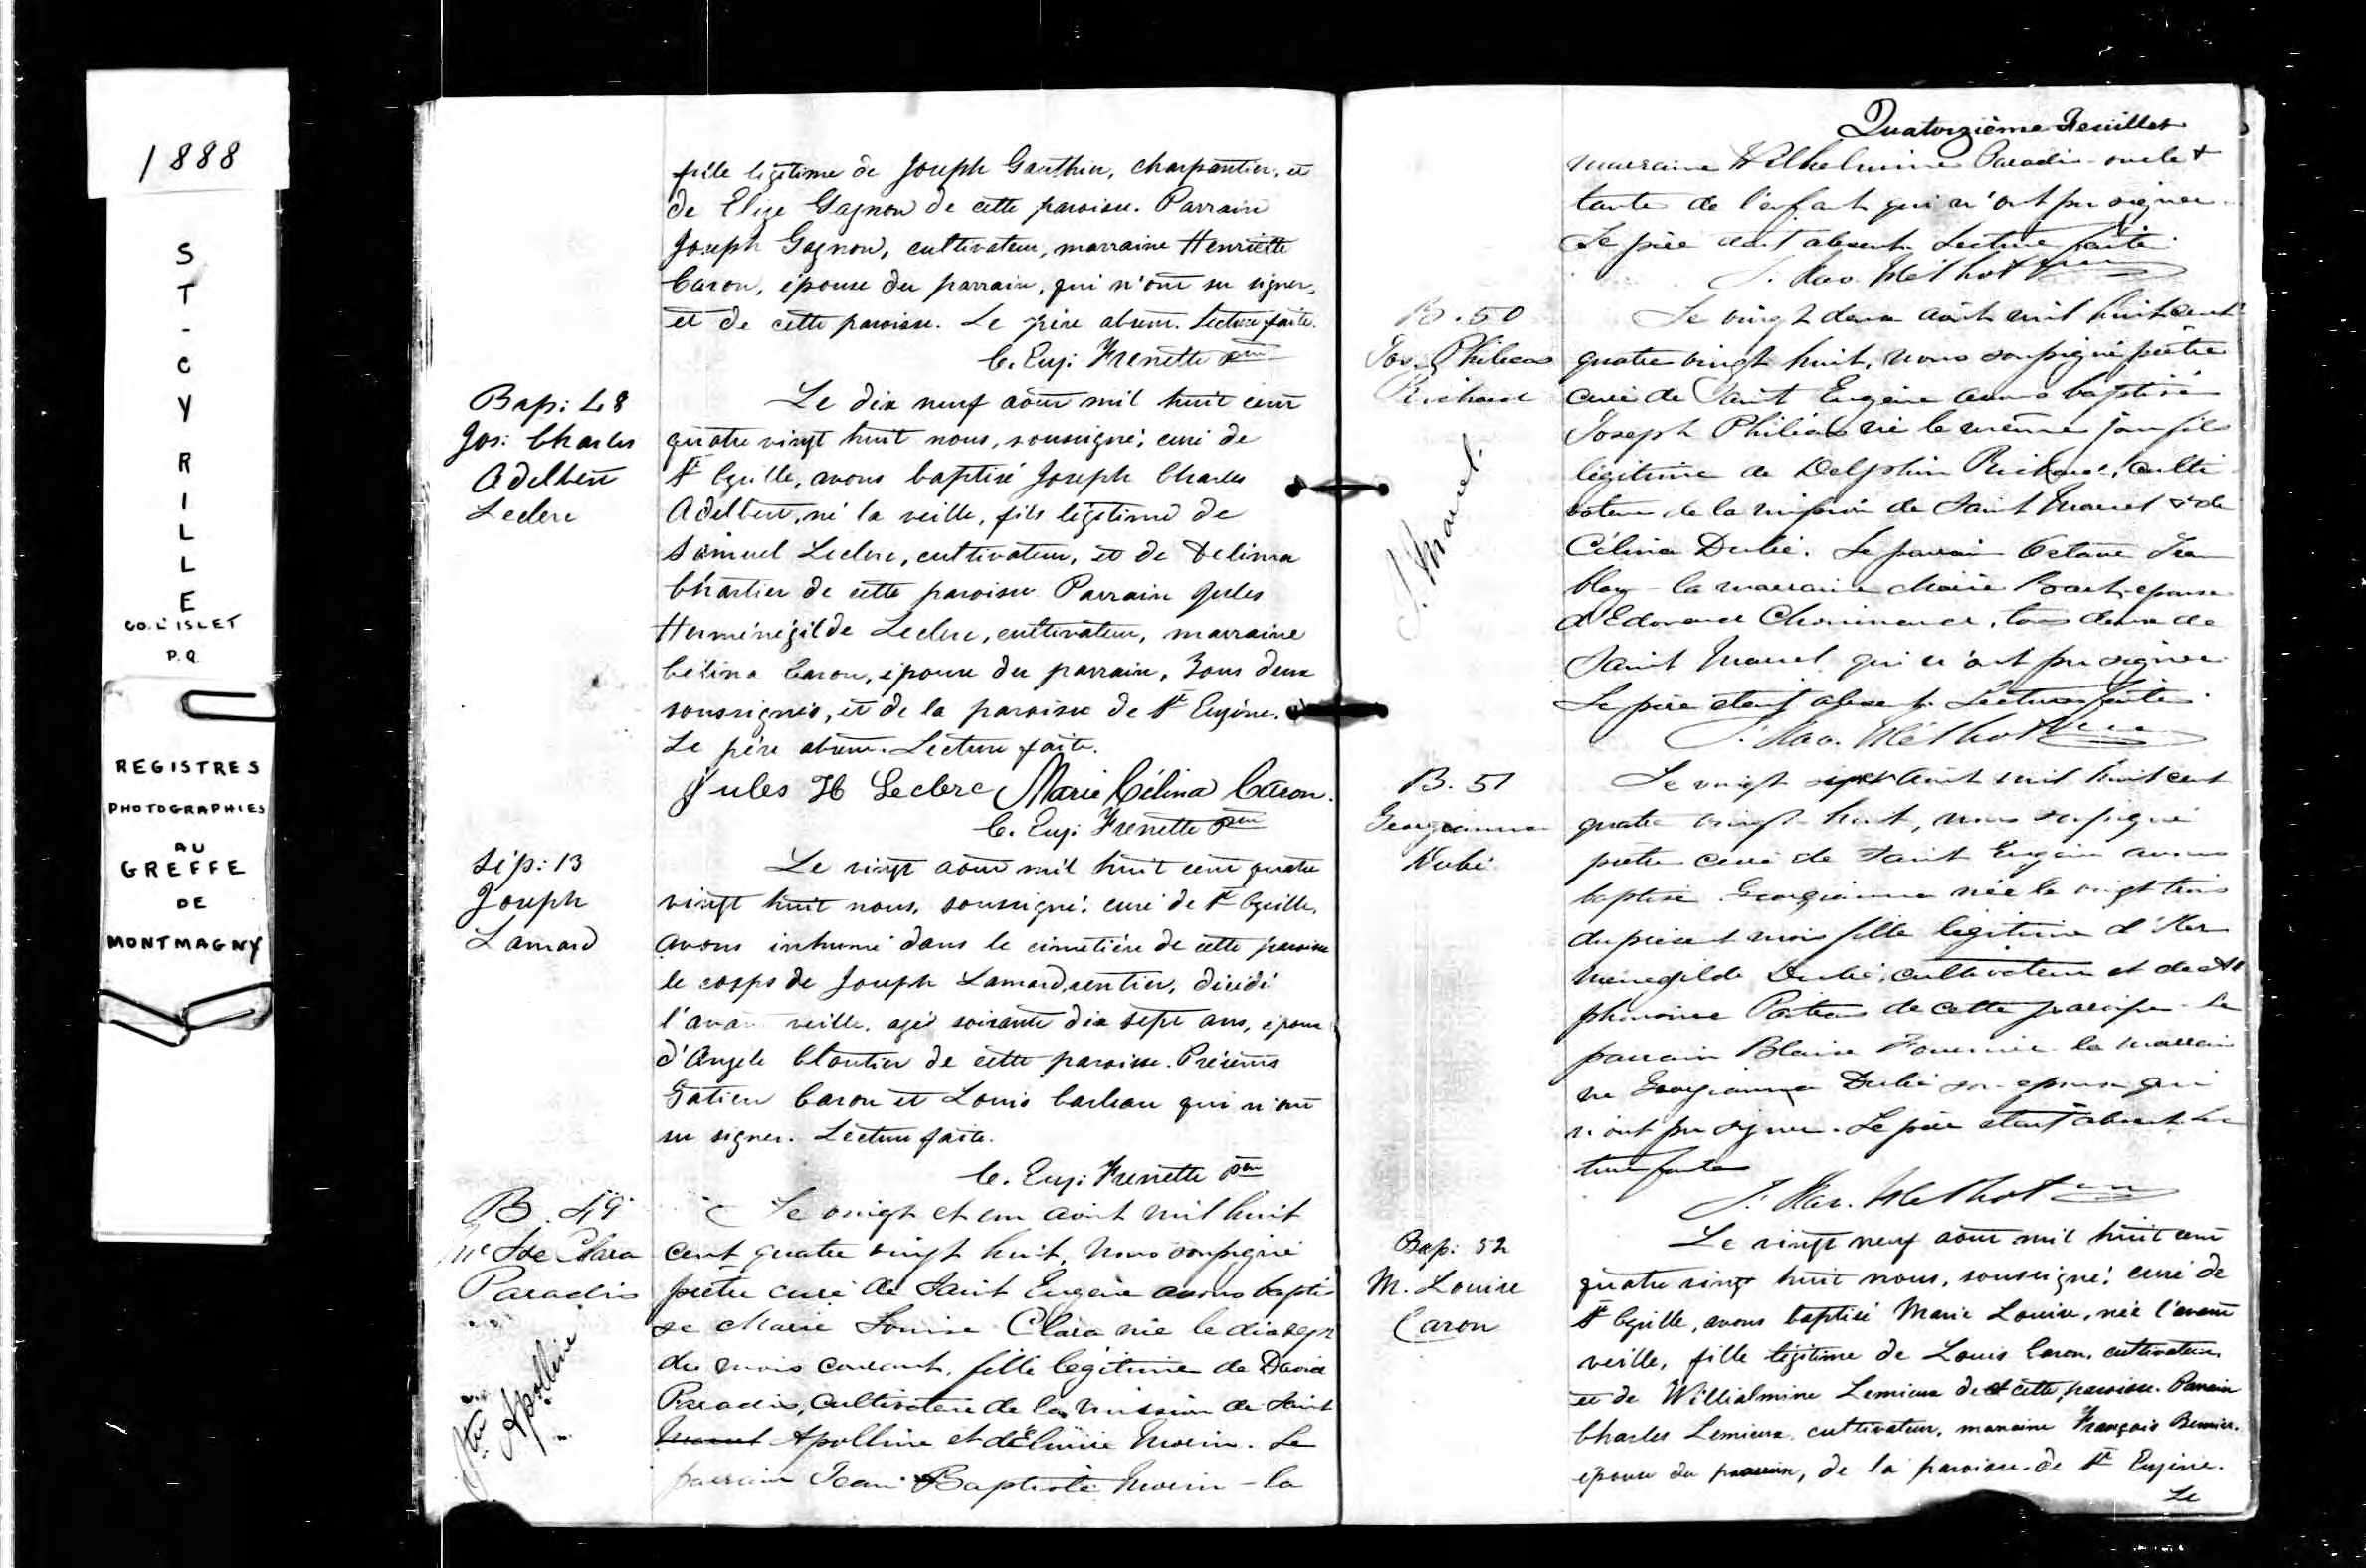 1888
ST-CYRILLE
CO. L'ISLET
P.Q.
REGISTRES
PHOTOGRAPHIES
AU
GREFFE
DE
MONTMAGNY
fille légitime de Joseph Gauthier, charpentier, et
de Elize Gagnon de cette paroisse. Parrain
Joseph Gagnon, cultivateur, marraine Henriette
Caron, épouse du parrain, qui n'ont su signer,
et de cette paroisse. Le père absent. Lecture faite.
C. Eug: Frenette ptre
Bap: 48
Jos: Charles
Adelbert
Leclerc
Le dix neuf août mil huit cent
quatre vingt huit nous, soussigné, curé de
St Cyrille, avons baptisé Joseph Charles
Adelbert, né la veille, fils légitime de
Samuel Leclerc, cultivateur, et de Delima
Chartier de cette paroisse. Parrain Jules
Herménégilde Leclerc, cultivateur, marraine
Célina Caron, épouse du parrain, tous deux
soussignés, et de la paroisse de St Eugène.
Le père absent. Lecture faite.
Jules H Leclerc Marie Célina Caron.
C. Eug: Frenette ptre
Sép: 13
Joseph
Lamard
Le vingt août mil huit cent quatre
vingt huit nous, soussigné, curé de St Cyrille,
avons inhumé dans le cimetière de cette paroisse
le corps de Joseph Lamard, rentier, décédé
l'avant veille, agé soixante dix sept ans, époux
d'Angèle Cloutier de cette paroisse. Présents
Gatien Caron et Louis qui n'ont
su signer. Lecture faite.
C. Eug: Frenette ptre
B. 49
Mie Lse Clara
Paradis
Ste Apolline
Le vingt et un août mil huit
cent quatre vingt huit, nous soussigné
prêtre curé de Saint Eugène avons bapti
sé Marie Louise Clara née le dix sept
du mois courant, fille légitime de David
Paradis, cultivateur de la mission de Saint
Marcel Apolline et d'Elmire Morin. Le
parrain Jean Baptiste Morin - la
Quatorzième Feuillet
marraine Wilhelmine Paradis oncle &
tante de l'enfant qui n'ont pu signer.
Le père était absent. Lecture faite.
J. Methot ptre
B. 50
Jos. Philias
Richard
S. Marcel.
Le vingt deux août mil huit cent
quatre vingt huit, nous soussigné prêtre
curé de Saint Eugène avons baptisé
Joseph Philias né le même jour fils
légitime de Delphin Richard, culti
vateur de la mission de Saint Marcel & de
Célina Dubé. Le parrain Octave Trem
blay - la marraine Marie épouse
d'Edouard Chouinard, tous deux de
Saint Marcel, qui n'ont pu signer
Le père était absent. Lecture faite.
J. Méthot ptre
B. 51
Georgianna
Dubé
Le vingt sept août mil huit cent
quatre vingt huit, nous soussigné
prêtre curé de Saint Eugène avons
baptisé Georgianna née le vingt trois
du présent mois fille légitime d'Her
ménégilde Dubé, cultivateur et de
phonsine de cette paroisse. Le
parrain Blaise Fournier la marrai
ne Georgianna Dubé son épouse qui
n'ont pu signer. Le père était absent. Lec
ture faite
J. Methot ptre
Bap: 52
M. Louise
Caron
Le vingt neuf août mil huit cent
quatre vingt huit nous, soussigné, curé de
St Cyrille, avons baptisé Marie Louise, née l'avant
veille, fille légitime de Louis Caron, cultivateur,
et de Willialmine Lemieux de cette paroisse. Parrain
Charles Lemieux, cultivateur, marraine François Bernier,
épouse du parrain, de la paroisse de St Eugène.
Le